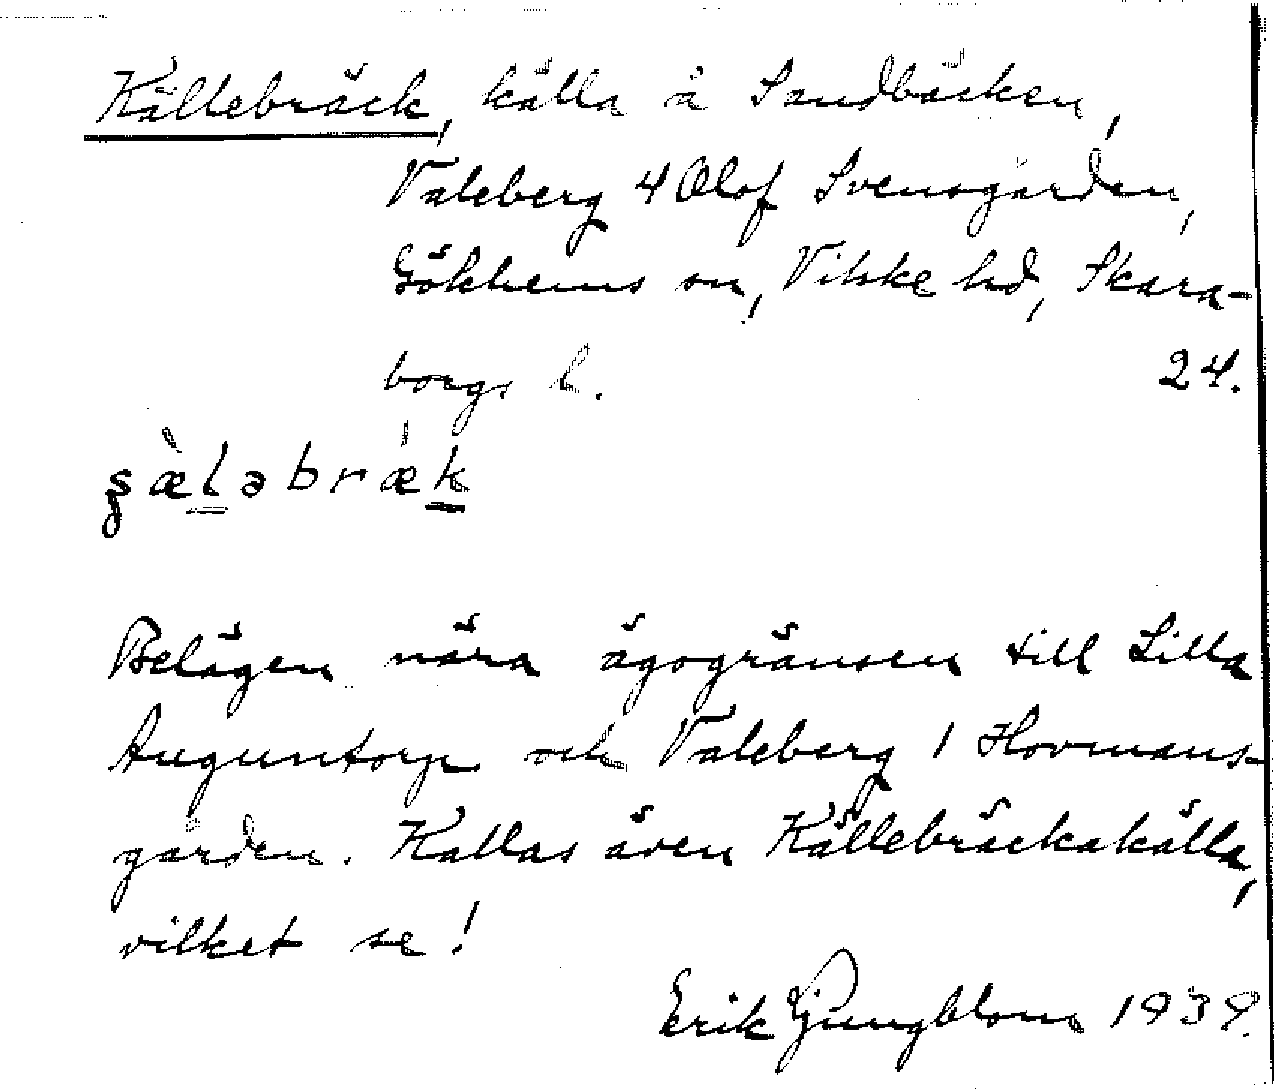 Källebräck, källa å Sandbäcken,
Valeberg 4 Olof Svensgården,
Gökhems sn, Vilske hd, Skara-
borgs l.
24.
ʂæ̀lləbræ̀k
Belägen nära ägogränsen till Lilla
Auguntorp och Valeberg 1 Hovmans-
gården. Kallas även Källebräckakälla,
vilket se!
Erik Ljungblom 1939.